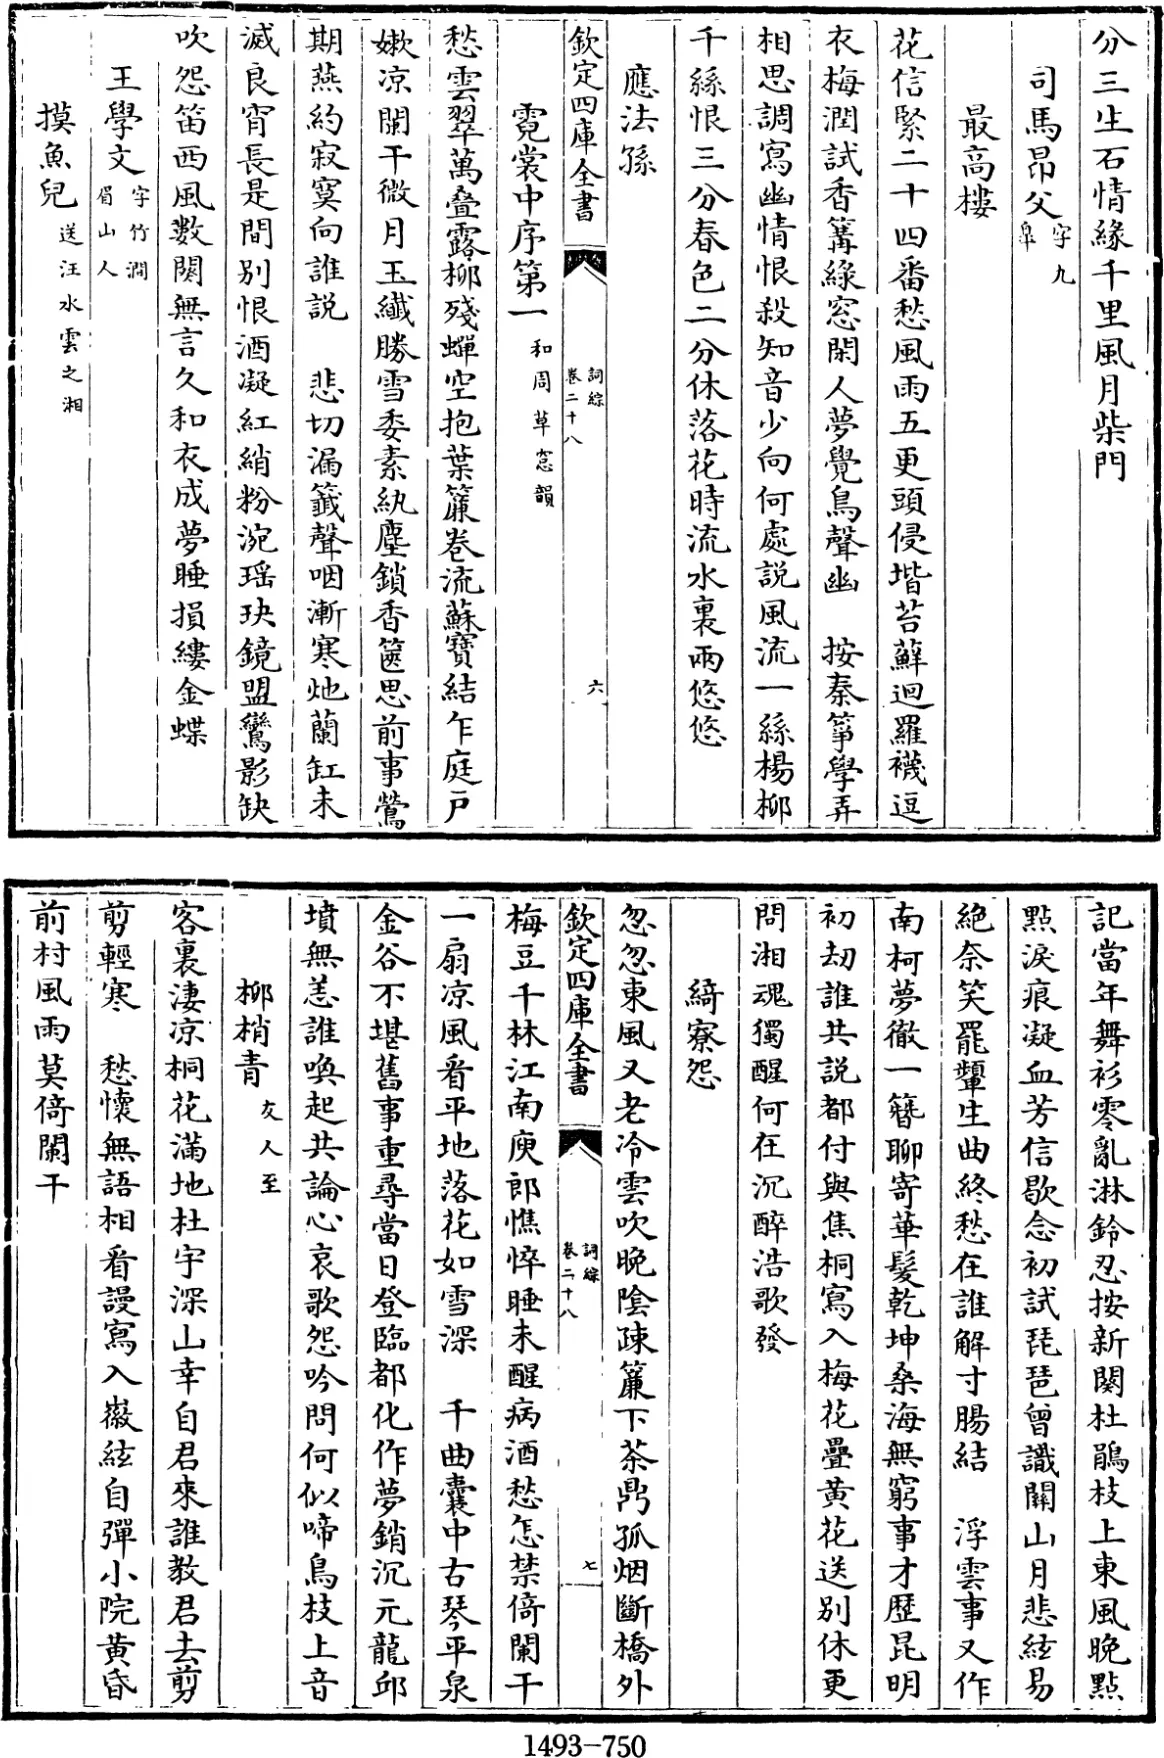 分三生石情緣千里風月柴門
司馬昂父字九臯
最高樓
花信緊二十四番愁風雨五更頭侵堦苔蘚迴羅襪逗
衣梅潤試香篝綠窓閑人夢覺鳥聲幽　按秦箏學弄
相思調寫幽情恨殺知音少向何處説風流一絲楊柳
千絲恨三分春色二分休落花時流水裏兩悠悠
應法孫
欽定四庫全書
詞綜
卷二十八
六
霓裳中序第一和周草窓韻
愁雲翠萬叠露柳殘蟬空抱葉簾卷流蘇寶結乍庭戸
嫩凉闌干微月玉纖勝雪委素紈塵鎖香篋思前事鶯
期燕約寂寞向誰説　悲切漏籤聲咽漸寒灺蘭缸未
滅良宵長是間别恨酒凝紅綃粉涴瑶玦鏡盟鸞影缺
吹怨笛西風數闋無言久和衣成夢睡損縷金蝶
王學文字竹澗眉山人
摸魚兒送汪水雲之湘
記當年舞衫零亂淋鈴忍按新闋杜鵑枝上東風晚點
點淚痕凝血芳信歇念初試琵琶曾識關山月悲絃易
絶奈笑罷顰生曲終愁在誰解寸腸結　浮雲事又作
南柯夢徹一簪聊寄華髪乾坤桑海無窮事才歴昆明
初刧誰共説都付與焦桐寫入梅花疊黄花送别休更
問湘魂獨醒何在沉醉浩歌發
綺寮怨
忽忽東風又老冷雲吹晚陰疎簾下茶鼎孤烟斷橋外
欽定四庫全書
詞綜
卷二十八
七
梅豆千林江南庾郎憔悴睡未醒病酒愁怎禁倚闌干
一扇凉風看平地落花如雪深　千曲囊中古琴平泉
金谷不堪舊事重尋當日登臨都化作夢銷沉元龍邱
墳無恙誰喚起共論心哀歌怨吟問何似啼鳥枝上音
柳梢青友人至
客裏淒凉桐花滿地杜宇深山幸自君來誰教君去剪
剪輕寒　愁懷無語相看謾寫入徽絃自彈小院黄昏
前村風雨莫倚闌干
1493-750